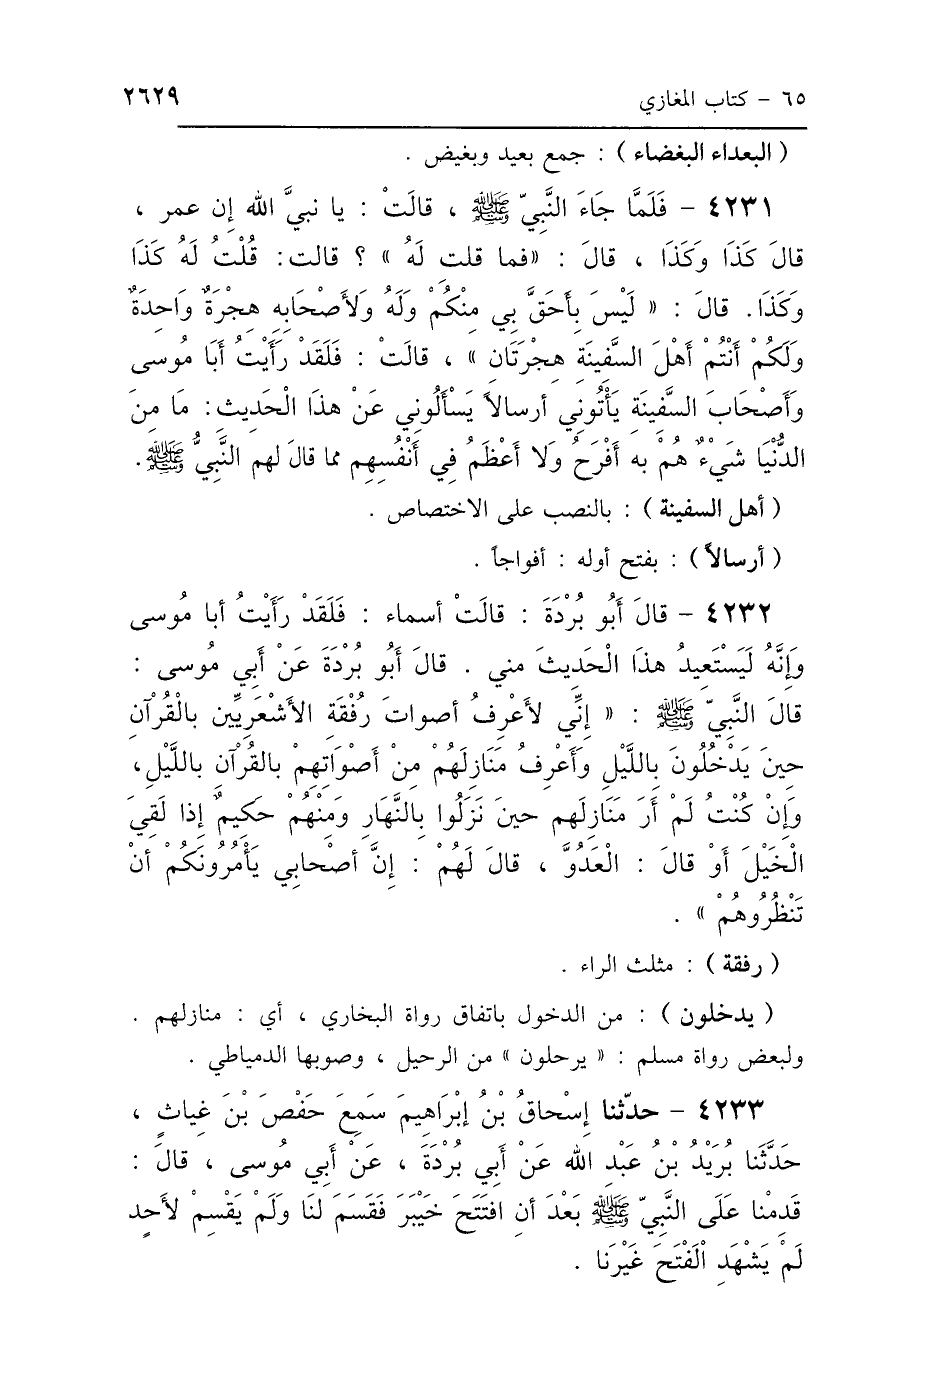 ٦٥ - كتاب المغازي ٢٦٢٩
( البعداء البغضاء ) : جمع بعيد وبغيض .
٤٢٣١ - فَلَمَّا جَاءَ النَّبِيّ ﷺ ، قالَتْ : يا نبيَّ الله إن عمر ،
قالَ كَذَا وَكَذَا ، قالَ : «فما قلت لَهُ » ؟ قالت: قُلْتُ لَهُ كَذَا
وَكَذَا. قالَ : « لَيْسَ بِأَحَقَّ بِي مِنْكُمْ وَلَهُ وَلأَصْحَابِهِ هِجْرَةٌ وَاحِدَةٌ
وَلَكُمْ أَنْتُمْ أَهْلَ السَّفِينَةِ هِجْرَتَانِ » ، قالَتْ : فَلَقَدْ رَأَيْتُ أَبَا مُوسى
وَأَصْحَابَ السَّفِينَةِ يَأْتُونِي أرسالاً يَسْأَلُونِي عَنْ هذَا الْحَدِيثِ: مَا مِنَ
الدُّنْيَا شَيْءٌ هُمْ بِهِ أَفْرَحُ وَلا أَعْظَمُ فِي أَنْفُسِهِم مما قالَ لهم النَّبِيُّ ﷺ.
( أهل السفينة ) : بالنصب على الاختصاص .
( أرسالاً ) : بفتح أوله : أفواجاً .
٤٢٣٢ - قالَ أَبُو بُرْدَةَ : قالَتْ أسماء : فَلَقَدْ رَأَيْتُ أبا مُوسى
وَإِنَّهُ لَيَسْتَعِيدُ هذَا الْحَدِيثَ مني . قالَ أَبُو بُرْدَةَ عَنْ أَبِي مُوسى :
قالَ النَّبِيّ ﷺ : « إِنِّي لأَعْرِفُ أصواتَ رُفْقَةِ الأَشْعَرِيِّين بالْقُرْآنِ
حِينَ يَدْخُلُونَ بِاللَّيْلِ وَأَعْرِفُ مَنَازِلَهُمْ مِنْ أَصْوَاتِهِمْ بالقُرآنِ بِاللَّيْلِ،
وَإِنْ كُنْتُ لَمْ أَرَ مَنَازِلَهم حينَ نَزَلُوا بِالنَّهَارِ وَمِنْهُمْ حَكِيمٌ إِذا لَقِيَ
الْخَيْلَ أَوْ قالَ : الْعَدُوَّ ، قالَ لَهُمْ : إِنَّ أصْحابِي يَأْمُرُونَكُمْ أنْ
تَنْظُرُوهُمْ » .
( رفقة ) : مثلث الراء .
( يدخلون ) : من الدخول باتفاق رواة البخاري ، أي : منازلهم .
ولبعض رواة مسلم : « يرحلون » من الرحيل ، وصوبها الدمياطي .
٤٢٣٣ - حدّثنا إِسْحاقُ بْنُ إِبْرَاهِيمَ سَمِعَ حَفْصَ بْنَ غِياثٍ ،
حَدَّثَنَا بُرَيْدُ بْنُ عَبْدِ الله عَنْ أَبِي بُرْدَةَ ، عَنْ أَبِي مُوسى ، قالَ :
قَدِمْنا عَلَى النَّبِيّ ﷺ بَعْدَ أَنِ افتَتَحَ خَيْبَرَ فَقَسَمَ لَنَا وَلَمْ يَقْسِمْ لأَحدٍ
لَمْ يَشْهَدِ الْفَتْحَ غَيْرَنا .